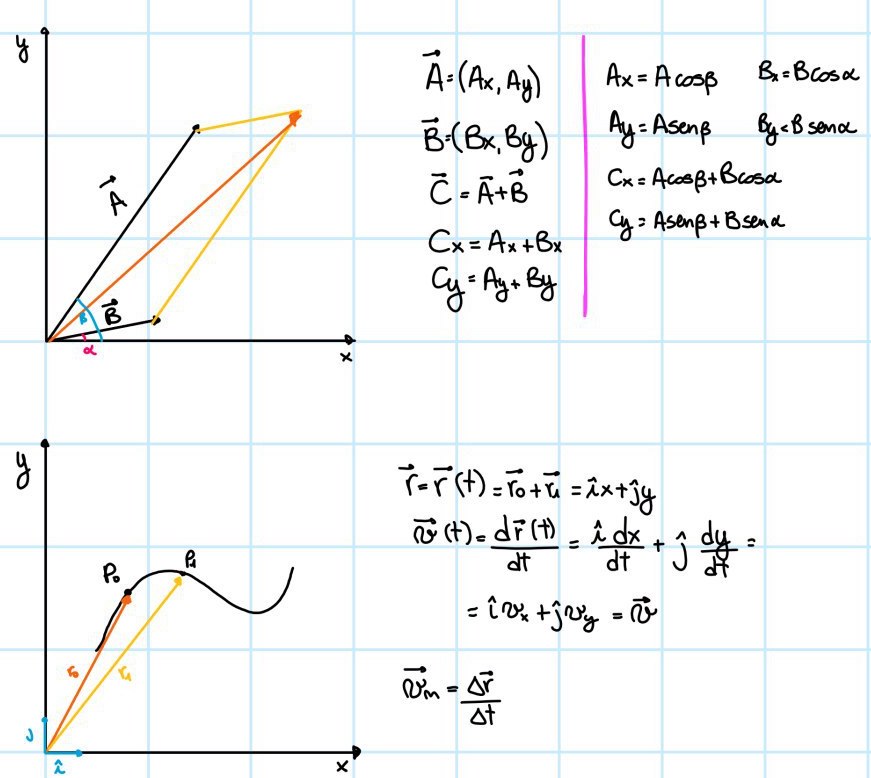 y
A⃗
B⃗
β
α
x
A⃗=(Ax, Ay)
B⃗=(Bx, By)
C⃗ = A⃗+B⃗
Cx = Ax + Bx
Cy = Ay + By
Ax = A cosβ Bx = B cosα
Ay = A senβ By = B senα
Cx = A cosβ + B cosα
Cy = A senβ + B senα
y
P₀ P₁
r₀ r₁
ĵ
î
x
r⃗ = r⃗(t) = r⃗₀ + r⃗₁ = îx + ĵy
v⃗(t) = dr⃗(t)/dt = î dx/dt + ĵ dy/dt =
= îvx + ĵvy = v⃗
v⃗m = Δr⃗/Δt